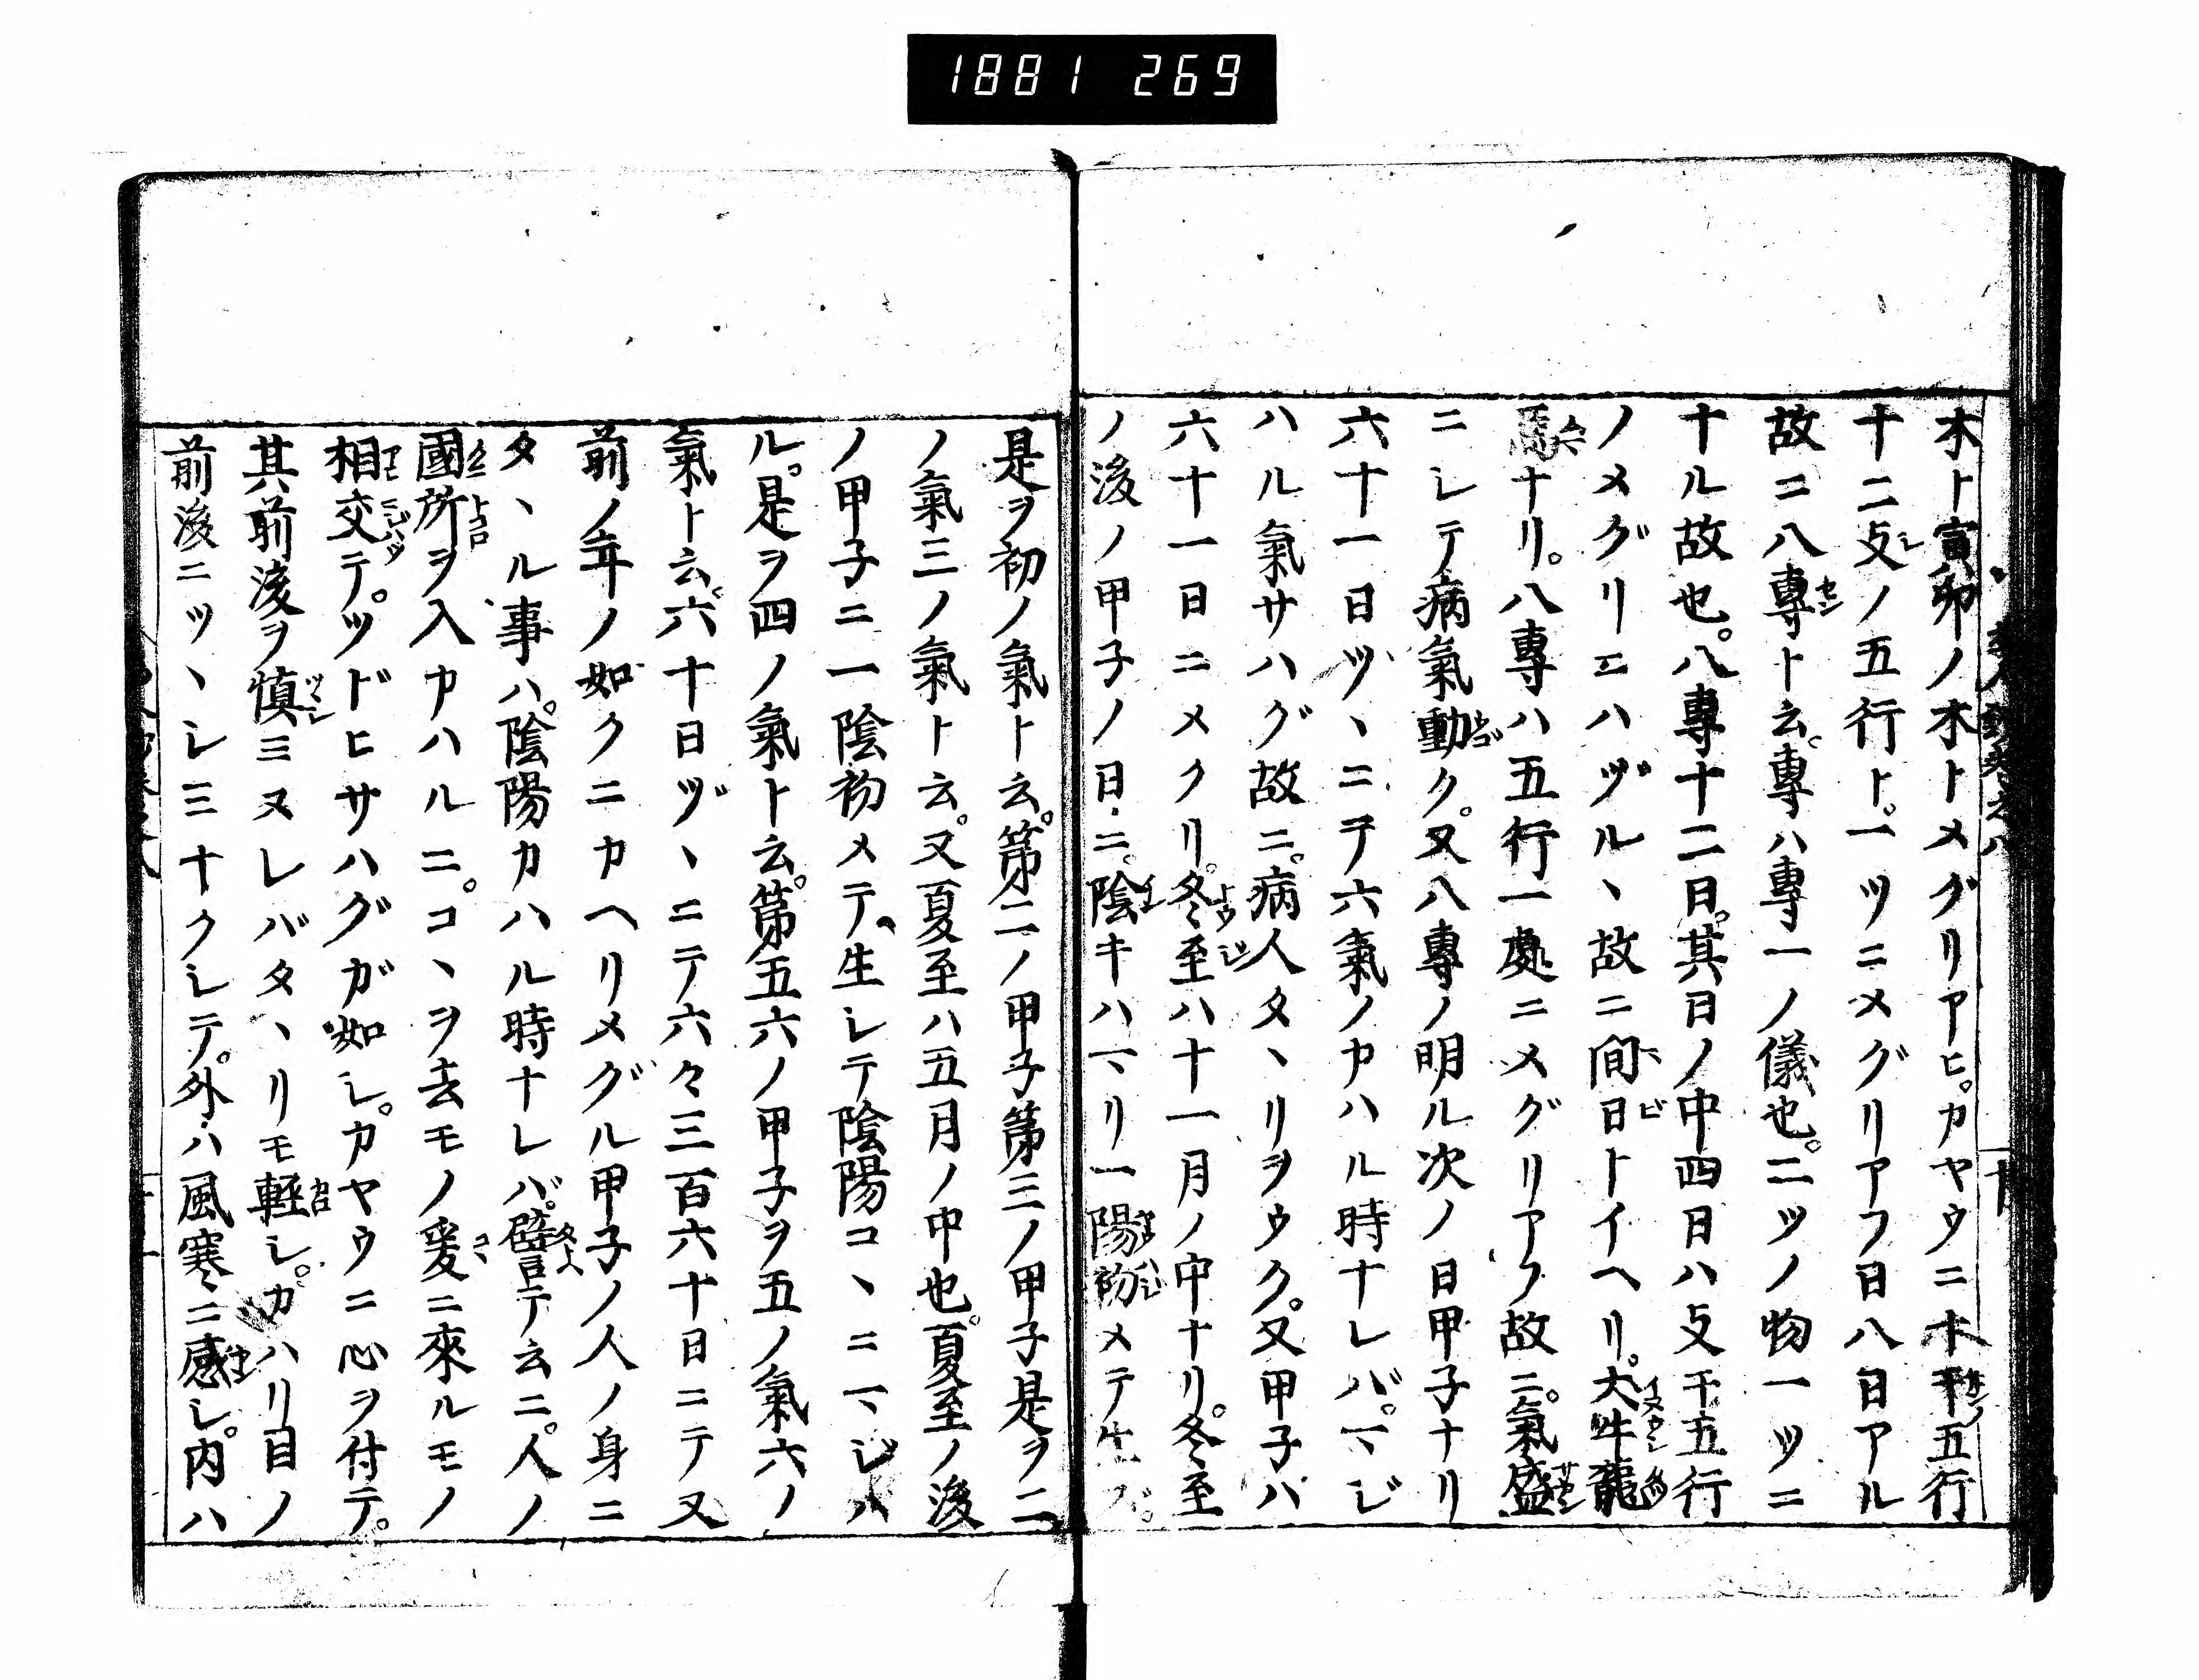 1881 269
木ト寅卯ノ木トメグリアヒ。カヤウニ十干ノ五行
十二支ノ五行ト。一ツニメグリアフ日八日アル
故ニ八專ト云。專ハ專一ノ儀也。二ツノ物一ツニ
ナル故也。八專十二日。其日ノ中四日ハ支干五行
ノメグリニハヅルヽ故ニ間日トイヘリ。犬牛龍
馬ナリ。八專ハ五行一處ニメグリアフ故ニ。氣盛
ニシテ病氣動ク。又八專ノ明ル次ノ日甲子ナリ
六十一日ヅヽニテ六氣ノカハル時ナレバ。マジ
ハル氣サハグ故ニ。病人タヽリヲウク。又甲子ハ
六十一日ニメクリ。冬至ハ十一月ノ中ナリ。冬至
ノ後ノ甲子ノ日ニ。陰キハマリ一陽初メテ生ズ。
是ヲ初ノ氣ト云。第二ノ甲子第三ノ甲子是ヲ二
ノ氣三ノ氣ト云。又夏至ハ五月ノ中也。夏至ノ後
ノ甲子ニ一陰初メテ生シテ陰陽コヽニマジハ
ル。是ヲ四ノ氣ト云。第五六ノ甲子ヲ五ノ氣六ノ
氣ト云。六十日ヅヽニテ六々三百六十日ニテ又
前ノ年ノ如クニカヘリメグル甲子ノ人ノ身ニ
タヽル事ハ。陰陽カハル時ナレバ。譬テ云ニ。人ノ
國所ヲ入カハルニ。コヽヲ去モノ爰ニ來ルモノ
相交テ。ツドヒサハグガ如シ。カヤウニ心ヲ付テ。
其前後ヲ慎ミヌレバタヽリモ軽シ。カハリ目ノ
前後ニツヽシミナクシテ。外ハ風寒ニ感シ。内ハ